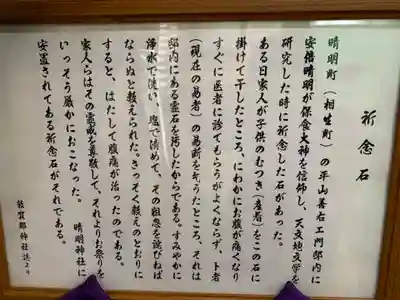 祈念石
晴明町（相生町）の平山善右エ門邸内に
安倍晴明が保食大神を信仰し、天文地文学を
研究した時に祈念した石があった。
ある日家人が子供のむつき（産着）をこの石に
掛けて干したところ、にわかにお腹が痛くなり
すぐに医者に診てもらうがよくならず、卜者
（現在の易者）の易断を乞うたところ、それは
邸内にある霊石を汚したからである。すみやかに
浄水で洗い、塩で清めて、その粗忽を詫びねば
ならぬと教えられた。さっそく教えのとおりに
すると、はたして腹痛が治ったのである。
家人らはその霊威を尊敬して、それよりお祭りを
いっそう厳かにおこなった。 晴明神社に
安置されてある祈念石がそれである。
敦賀郡神社誌より